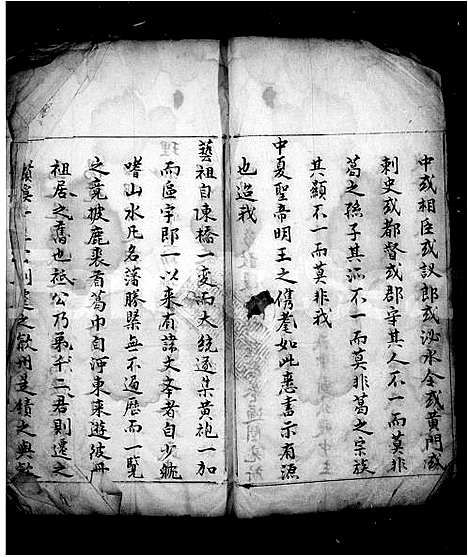 中或相臣或議郎或泌水令或黃門或
刺史或都督或郡守其人不一而莫非
葛之孫子其派不一而莫非葛之宗族
其顯不一而莫非我
中夏聖帝明王之儁耄如此應書示有源
也迨我
藝祖自陳橋一變而大統遂集黃袍一加
而區宇郎一以來有諱文者自少
嗜山水凡名藩勝槩無不遍歷而一覧
之竟披鹿裘首葛巾自河東來遊彼丹
祖居之舊也祗公乃弟千二君則遷之
遷之歙州是續之與歙